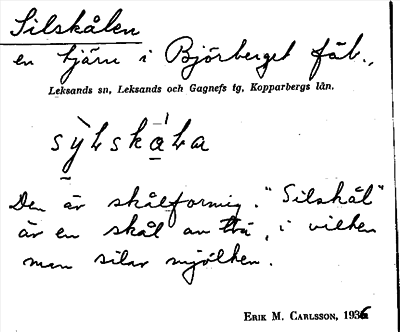 Silskålen
en tjärn i Björberget fäb.,
Leksands sn, Leksands och Gagnefs tg, Kopparbergs län.
sỳⱢskáⱢa
Den är skålformig. "Silskål"
är en skål av trä, i vilken
man silar mjölken.
ERIK M. CARLSSON, 1936